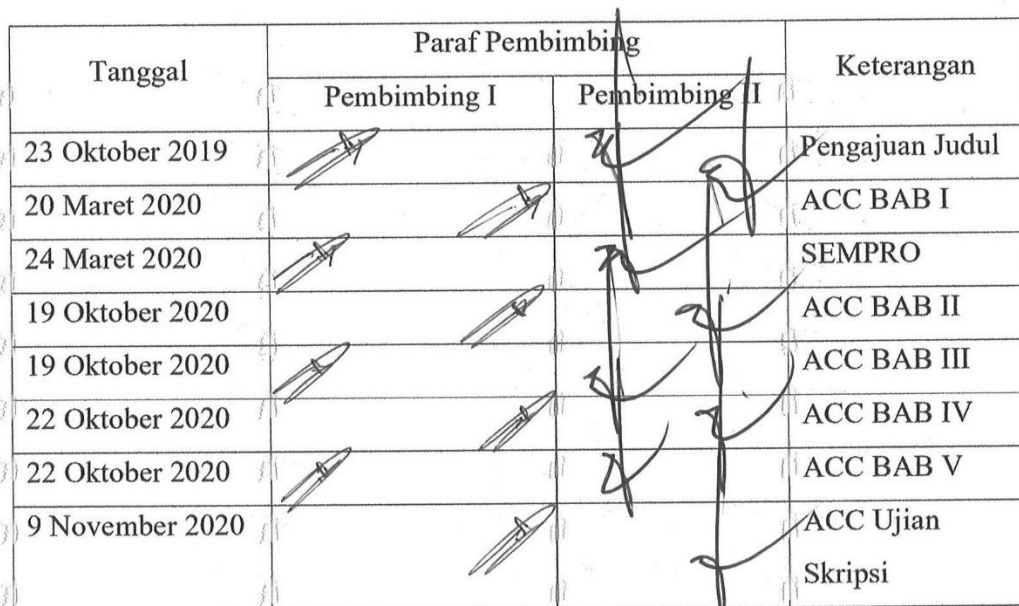 Tanggal
Paraf Pembimbing
Keterangan
Pembimbing I
Pembimbing II
23 Oktober 2019
Pengajuan Judul
20 Maret 2020
ACC BAB I
24 Maret 2020
SEMPRO
19 Oktober 2020
ACC BAB II
19 Oktober 2020
ACC BAB III
22 Oktober 2020
ACC BAB IV
22 Oktober 2020
ACC BAB V
9 November 2020
ACC Ujian
Skripsi